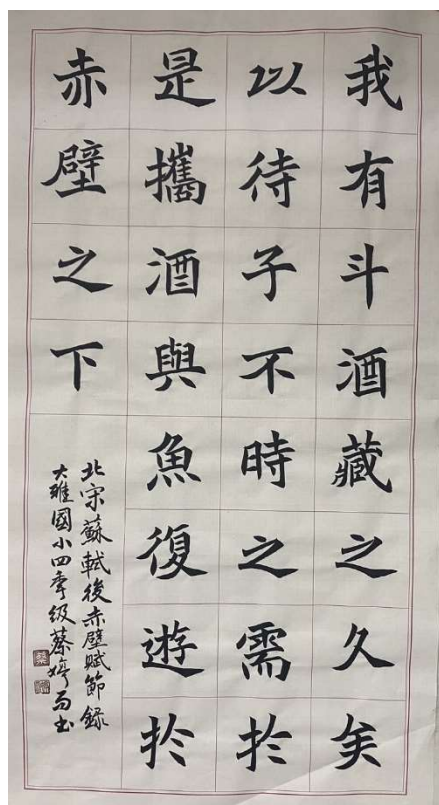 我有斗酒藏之久矣
以待子不時之需於
是攜酒與魚復遊於
赤壁之下
北宋蘇軾後赤壁賦節錄
大雅國小四年级蔡婷而书